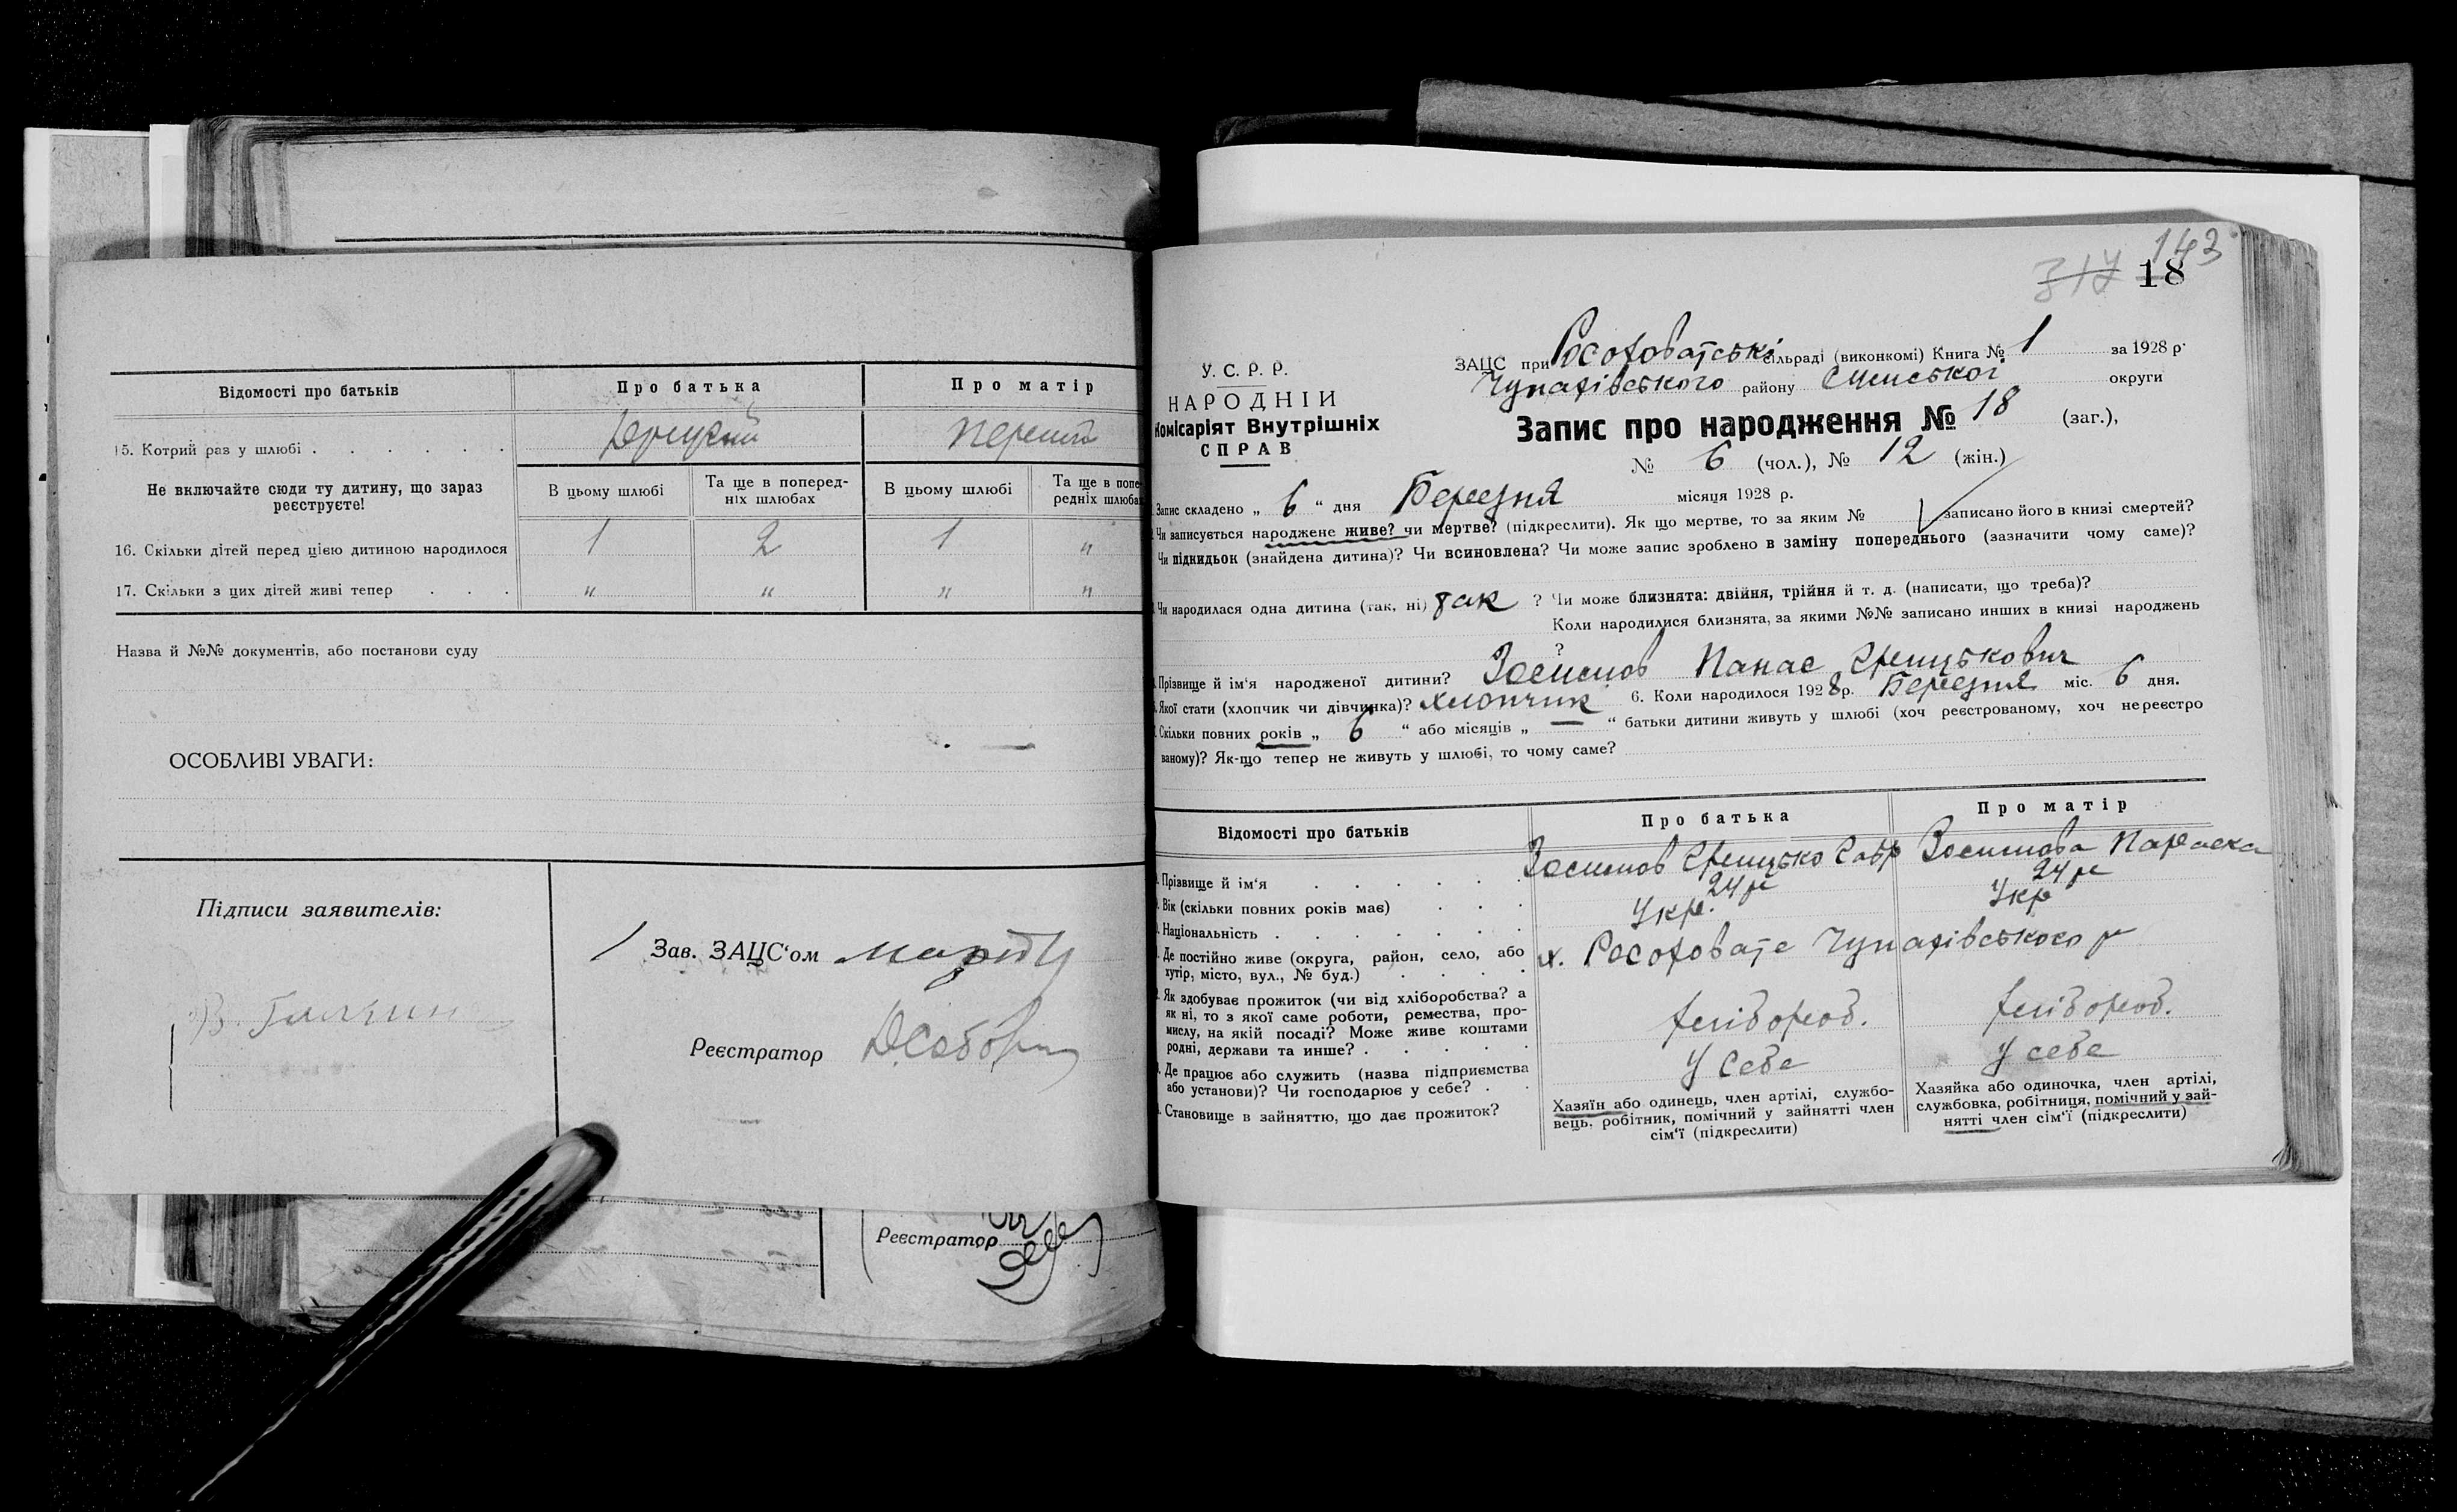 Відомості про батьків
Про батька
Про матір
15. Котрий раз у шлюбі
Другий
Перший
Не включайте сюди ту дитину, що зараз
реєструєте!
В цьому шлюбі
Та ще в поперед-
ніх шлюбах
В цьому шлюбі
Та ще в попе-
редніх шлюбах
16. Скільки дітей перед цією дитиною народилося
1
2
1
"
17. Скільки з цих дітей живі тепер
"
"
"
"
Назва й №№ документів, або постанови суду
ОСОБЛИВІ УВАГИ:
Підписи заявителів:
Зав. ЗАЦС'ом
Реєстратор
Реєстратор
143
317 18
У. С. Р. Р.
НАРОДНІЙ
Комісаріят Внутрішніх
СПРАВ
ЗАЦС при Росоховатські сільраді (виконкомі) Книга № 1 за 1928 р.
Чупахівського району Сумської округи
Запис про народження № 18 (заг.),
№ 6 (чол.), № 12 (жін.)
Запис складено „ 6 " дня Березня місяця 1928 р.
Чи записується народжене живе? чи мертве? (підкреслити). Як що мертве, то за яким № записано його в книзі смертей?
Чи підкидьок (знайдена дитина)? Чи всиновлена? Чи може запис зроблено в заміну попереднього (зазначити чому саме)?
Чи народилася одна дитина (так, ні) так ? Чи може близнята: двійня, трійня й т. д. (написати, що треба)?
Коли народилися близнята, за якими №№ записано инших в книзі народжень
?
Прізвище й ім'я народженої дитини? Зосимов Панас Грицькович
Якої стати (хлопчик чи дівчинка)? хлопчик 6. Коли народилося 1928 р. Березня міс. 6 дня.
Скільки повних років „ 6 " або місяців „ — " батьки дитини живуть у шлюбі (хоч реєстрованому, хоч нереєстро
ваному)? Як-що тепер не живуть у шлюбі, то чому саме?
Відомості про батьків
Про батька
Про матір
Прізвище й ім'я
Зосимов Грицько Гавр
Зосимова Параска
Вік (скільки повних років має)
24 р
24 р
Національність
Укр.
Укр
Де постійно живе (округа, район, село, або
хутір, місто, вул., № буд.)
х. Росоховате Чупахівського р
Як здобуває прожиток (чи від хліборобства? а
як ні, то з якої саме роботи, ремества, про-
мислу, на якій посаді? Може живе коштами
родні, держави та инше?
хлібороб.
хлібороб.
Де працює або служить (назва підприємства
або установи)? Чи господарює у себе?
У себе
У себе
Становище в зайняттю, що дає прожиток?
Хазяїн або одинець, член артілі, службо-
вець, робітник, помічний у зайнятті член
сім'ї (підкреслити)
Хазяйка або одиночка, член артілі,
службовка, робітниця, помічний у зай-
нятті член сім'ї (підкреслити)